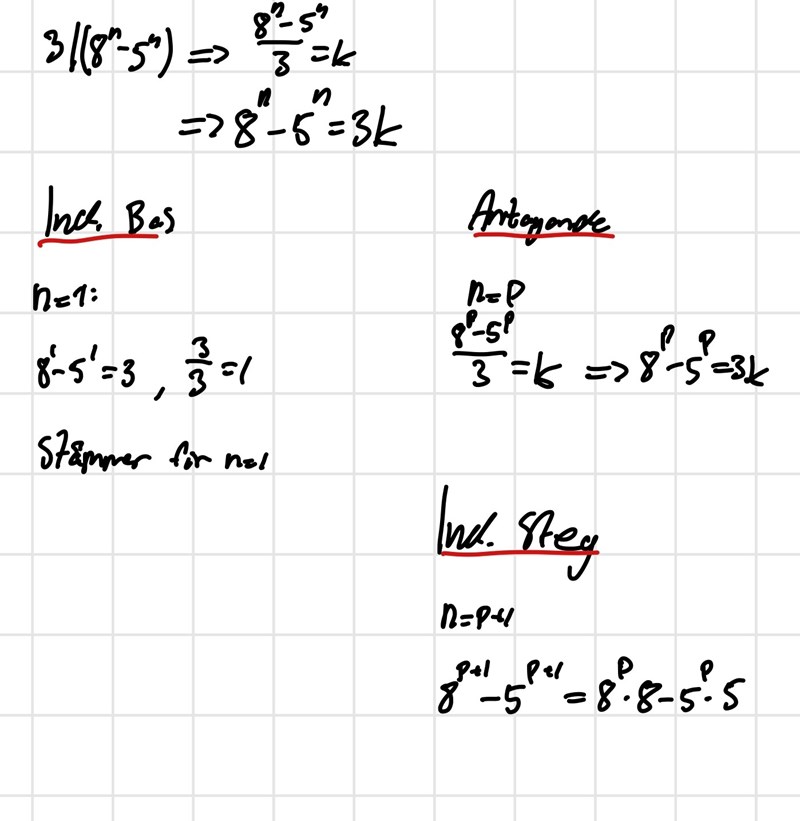 3|(8ⁿ-5ⁿ) => (8ⁿ-5ⁿ)/3 = k
=> 8ⁿ-5ⁿ = 3k
Ind. Bas
n=1:
8¹-5¹=3 , 3/3=1
Stämmer för n=1
Antagande
n=p
(8ᵖ-5ᵖ)/3 = k => 8ᵖ-5ᵖ=3k
Ind. Steg
n=p+1
8ᵖ⁺¹-5ᵖ⁺¹ = 8ᵖ·8-5ᵖ·5